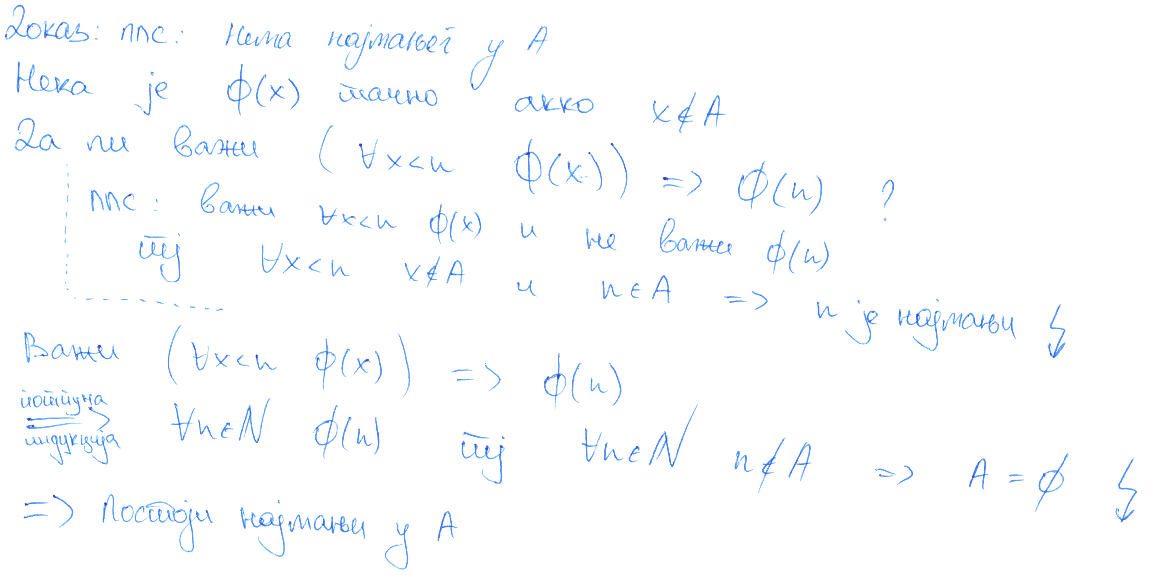 Доказ: ппс: Нема најмањег у A
Нека је ϕ(x) тачно акко x∉A
Да ли важи (∀x<n ϕ(x)) => ϕ(n) ?
ппс: важи ∀x<n ϕ(x) и не важи ϕ(n)
тј ∀x<n x∉A и n∈A => n је најмањи ↯
Важи (∀x<n ϕ(x)) => ϕ(n)
потпуна индукција => ∀n∈N ϕ(n) тј ∀n∈N n∉A => A=∅ ↯
=> Постоји најмањи у A